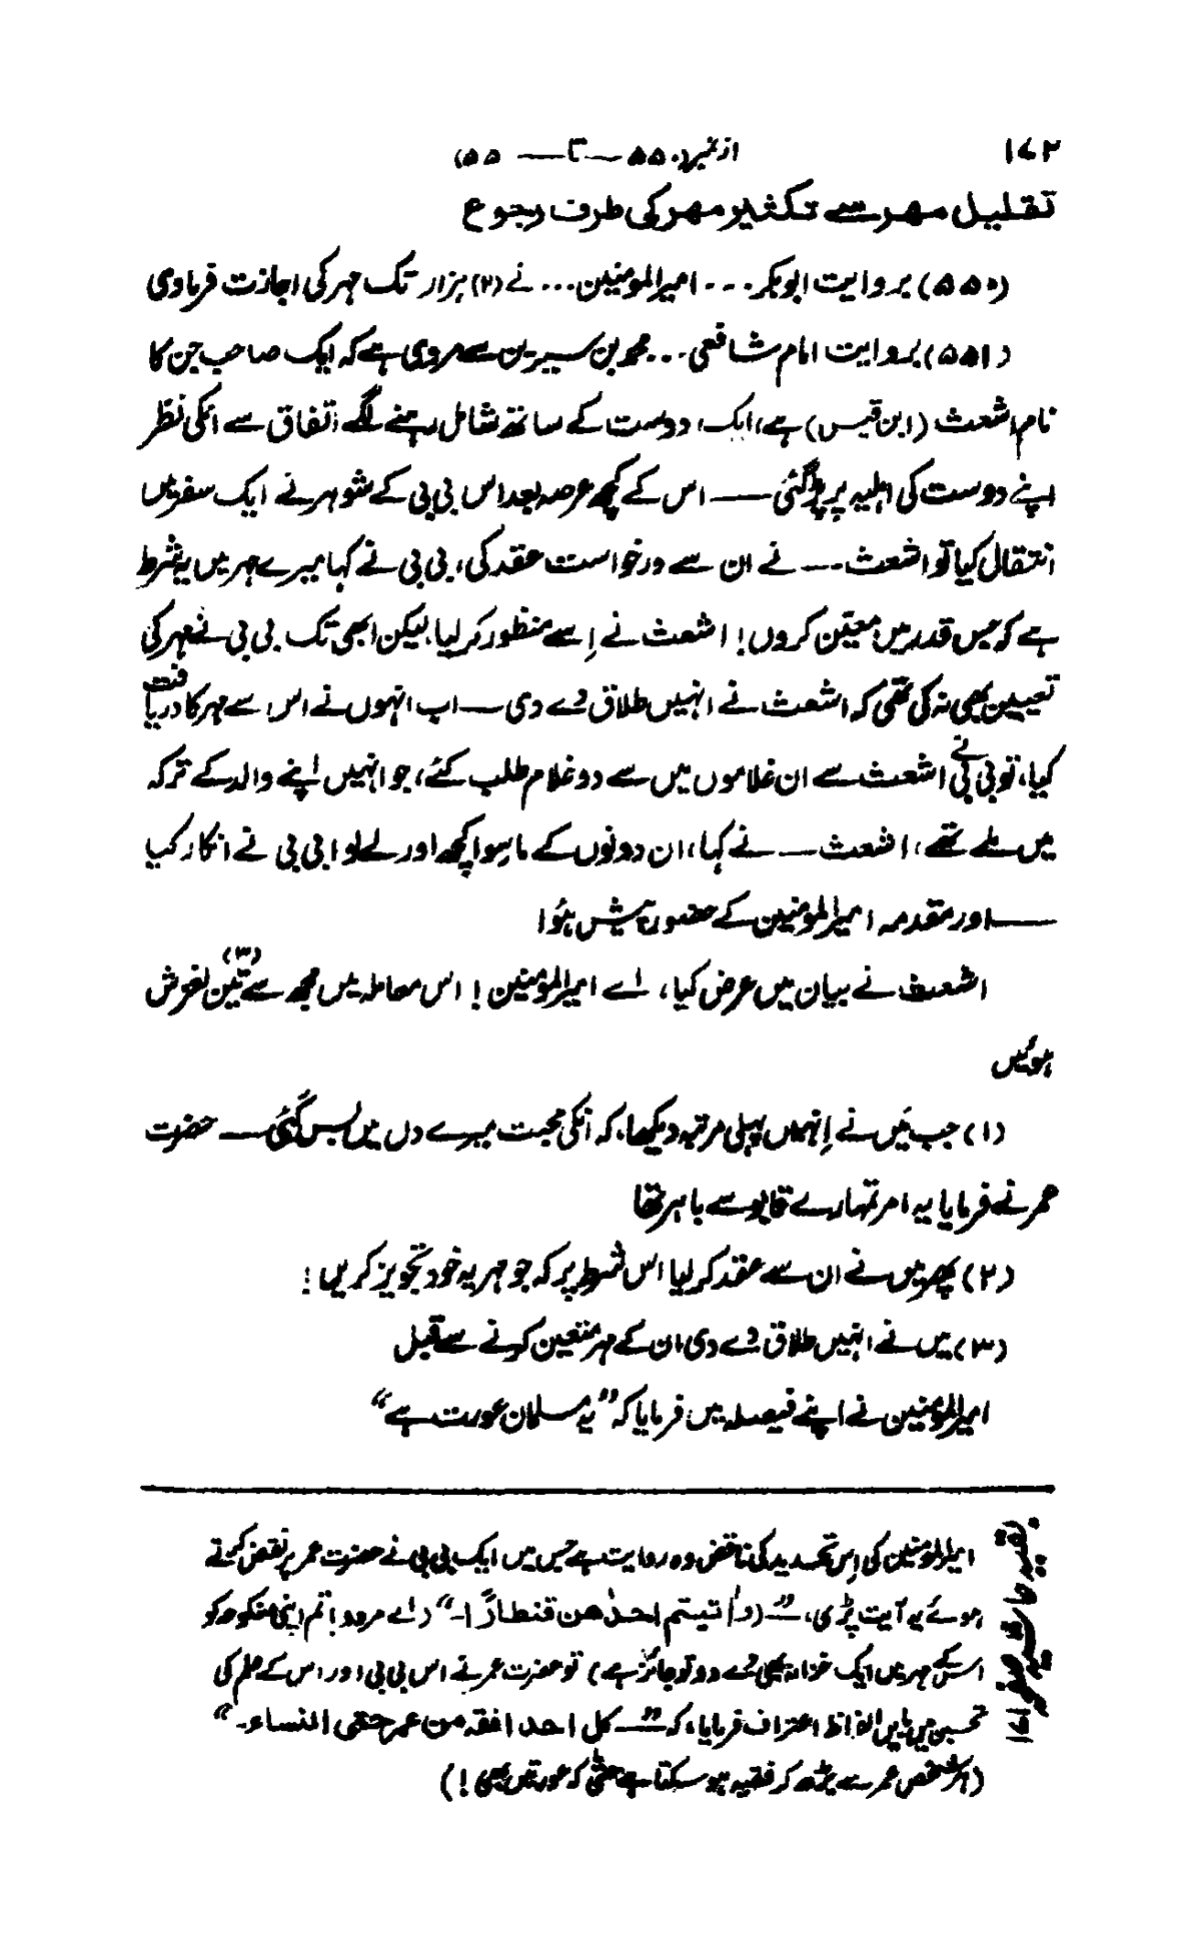 ۱۷۲
از نمبر(۵۵۰ — تا — ۵۵)
تقلیل مہر سے تکثیر مہر کی طرف رجوع
(۵۵۰) بروایت ابوبکر ۔۔۔ امیرالمومنین ۔۔۔ نے (۲) ہزار تک مہر کی اجازت فرمادی
(۵۵۱) بروایت امام شافعی ۔۔۔ محمد بن سیرین سے مروی ہے کہ ایک صاحب جن کا
نام اشعث (ابن قیس) ہے، ایک دوست کے ساتھ شامل رہنے لگے اتفاق سے انکی نظر
اپنے دوست کی اہلیہ پر پڑ گئی — اس کے کچھ عرصہ بعد اس بی بی کے شوہر نے ایک سفر میں
انتقال کیا تو اشعث — نے ان سے درخواست عقد کی، بی بی نے کہا میرے مہر میں یہ شرط
ہے کہ جس قدر میں معین کروں! اشعث نے اِسے منظور کر لیا، لیکن ابھی تک بی بی نے مہر کی
تعیین بھی نہ کی تھی کہ اشعث نے انہیں طلاق دے دی — اب انہوں نے اس سے مہر کا دریافت
کیا، تو بی بی نے اشعث سے ان غلاموں میں سے دو غلام طلب کئے، جو انہیں اپنے والد کے ترکہ
میں ملے تھے، اشعث — نے کہا، ان دونوں کے ماسوا کچھ اور لے لو! بی بی نے انکار کیا
— اور مقدمہ امیرالمومنین کے حضور پیش ہُوا
اشعث نے بیان میں عرض کیا، اے امیرالمومنین! اس معاملہ میں مجھ سے تین (۳) لغزش
ہوئیں
(۱) جب مَیں نے اِنہیں پہلی مرتبہ دیکھا، کہ انکی محبت میرے دل میں بس گئی — حضرت
عمر نے فرمایا یہ امر تمہارے قابو سے باہر تھا
(۲) پھر میں نے ان سے عقد کر لیا اس شرط پر کہ جو مہر یہ خود تجویز کریں!
(۳) میں نے انہیں طلاق دے دی ان کے مہر متعین کرنے سے قبل
امیرالمومنین نے اپنے فیصلہ میں فرمایا کہ ”یہ مسلمان عورت ہے“
بقیہ حاشیہ صفحہ ۱۷۱
امیرالمومنین کی اِس تحدید کی ناقض وہ روایت ہے جس میں ایک بی بی نے حضرت عمر پر نقض کرتے
ہوئے یہ آیت پڑی، ” — (واٰتیتم احدٰهن قنطارًا۔“ (اے مردو! تم اپنی منکوحہ کو
اسکے مہر میں ایک خزانہ بھی دے دو تو جائز ہے) تو حضرت عمر نے اس بی بی اور اس کے علم کی
تحسین میں بایں الفاظ اعتراف فرمایا، کہ ” — کل احد افقه من عمر حتی النساء۔“
(ہر شخص عمر سے بڑھ کر فقیہ ہو سکتا ہے حتیٰ کہ عورتیں بھی!)